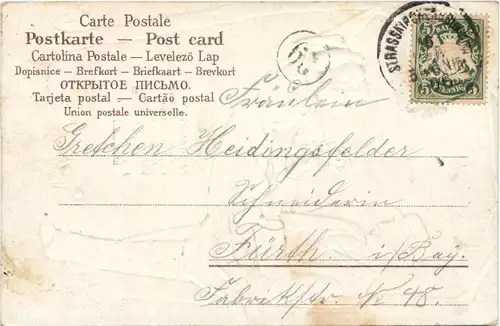 Carte Postale
Postkarte — Post card
Cartolina Postale — Levelező Lap
Dopisnice — Brefkort — Briefkaart — Brevkort
ОТКРЫТОЕ ПИСЬМО.
Tarjeta postal — Cartão postal
Union postale universelle.
5 5
Fräulein
Gretchen Heidingsfelder
Schneiderin
Fürth. i/Bay.
Fabrikstr. No 48.